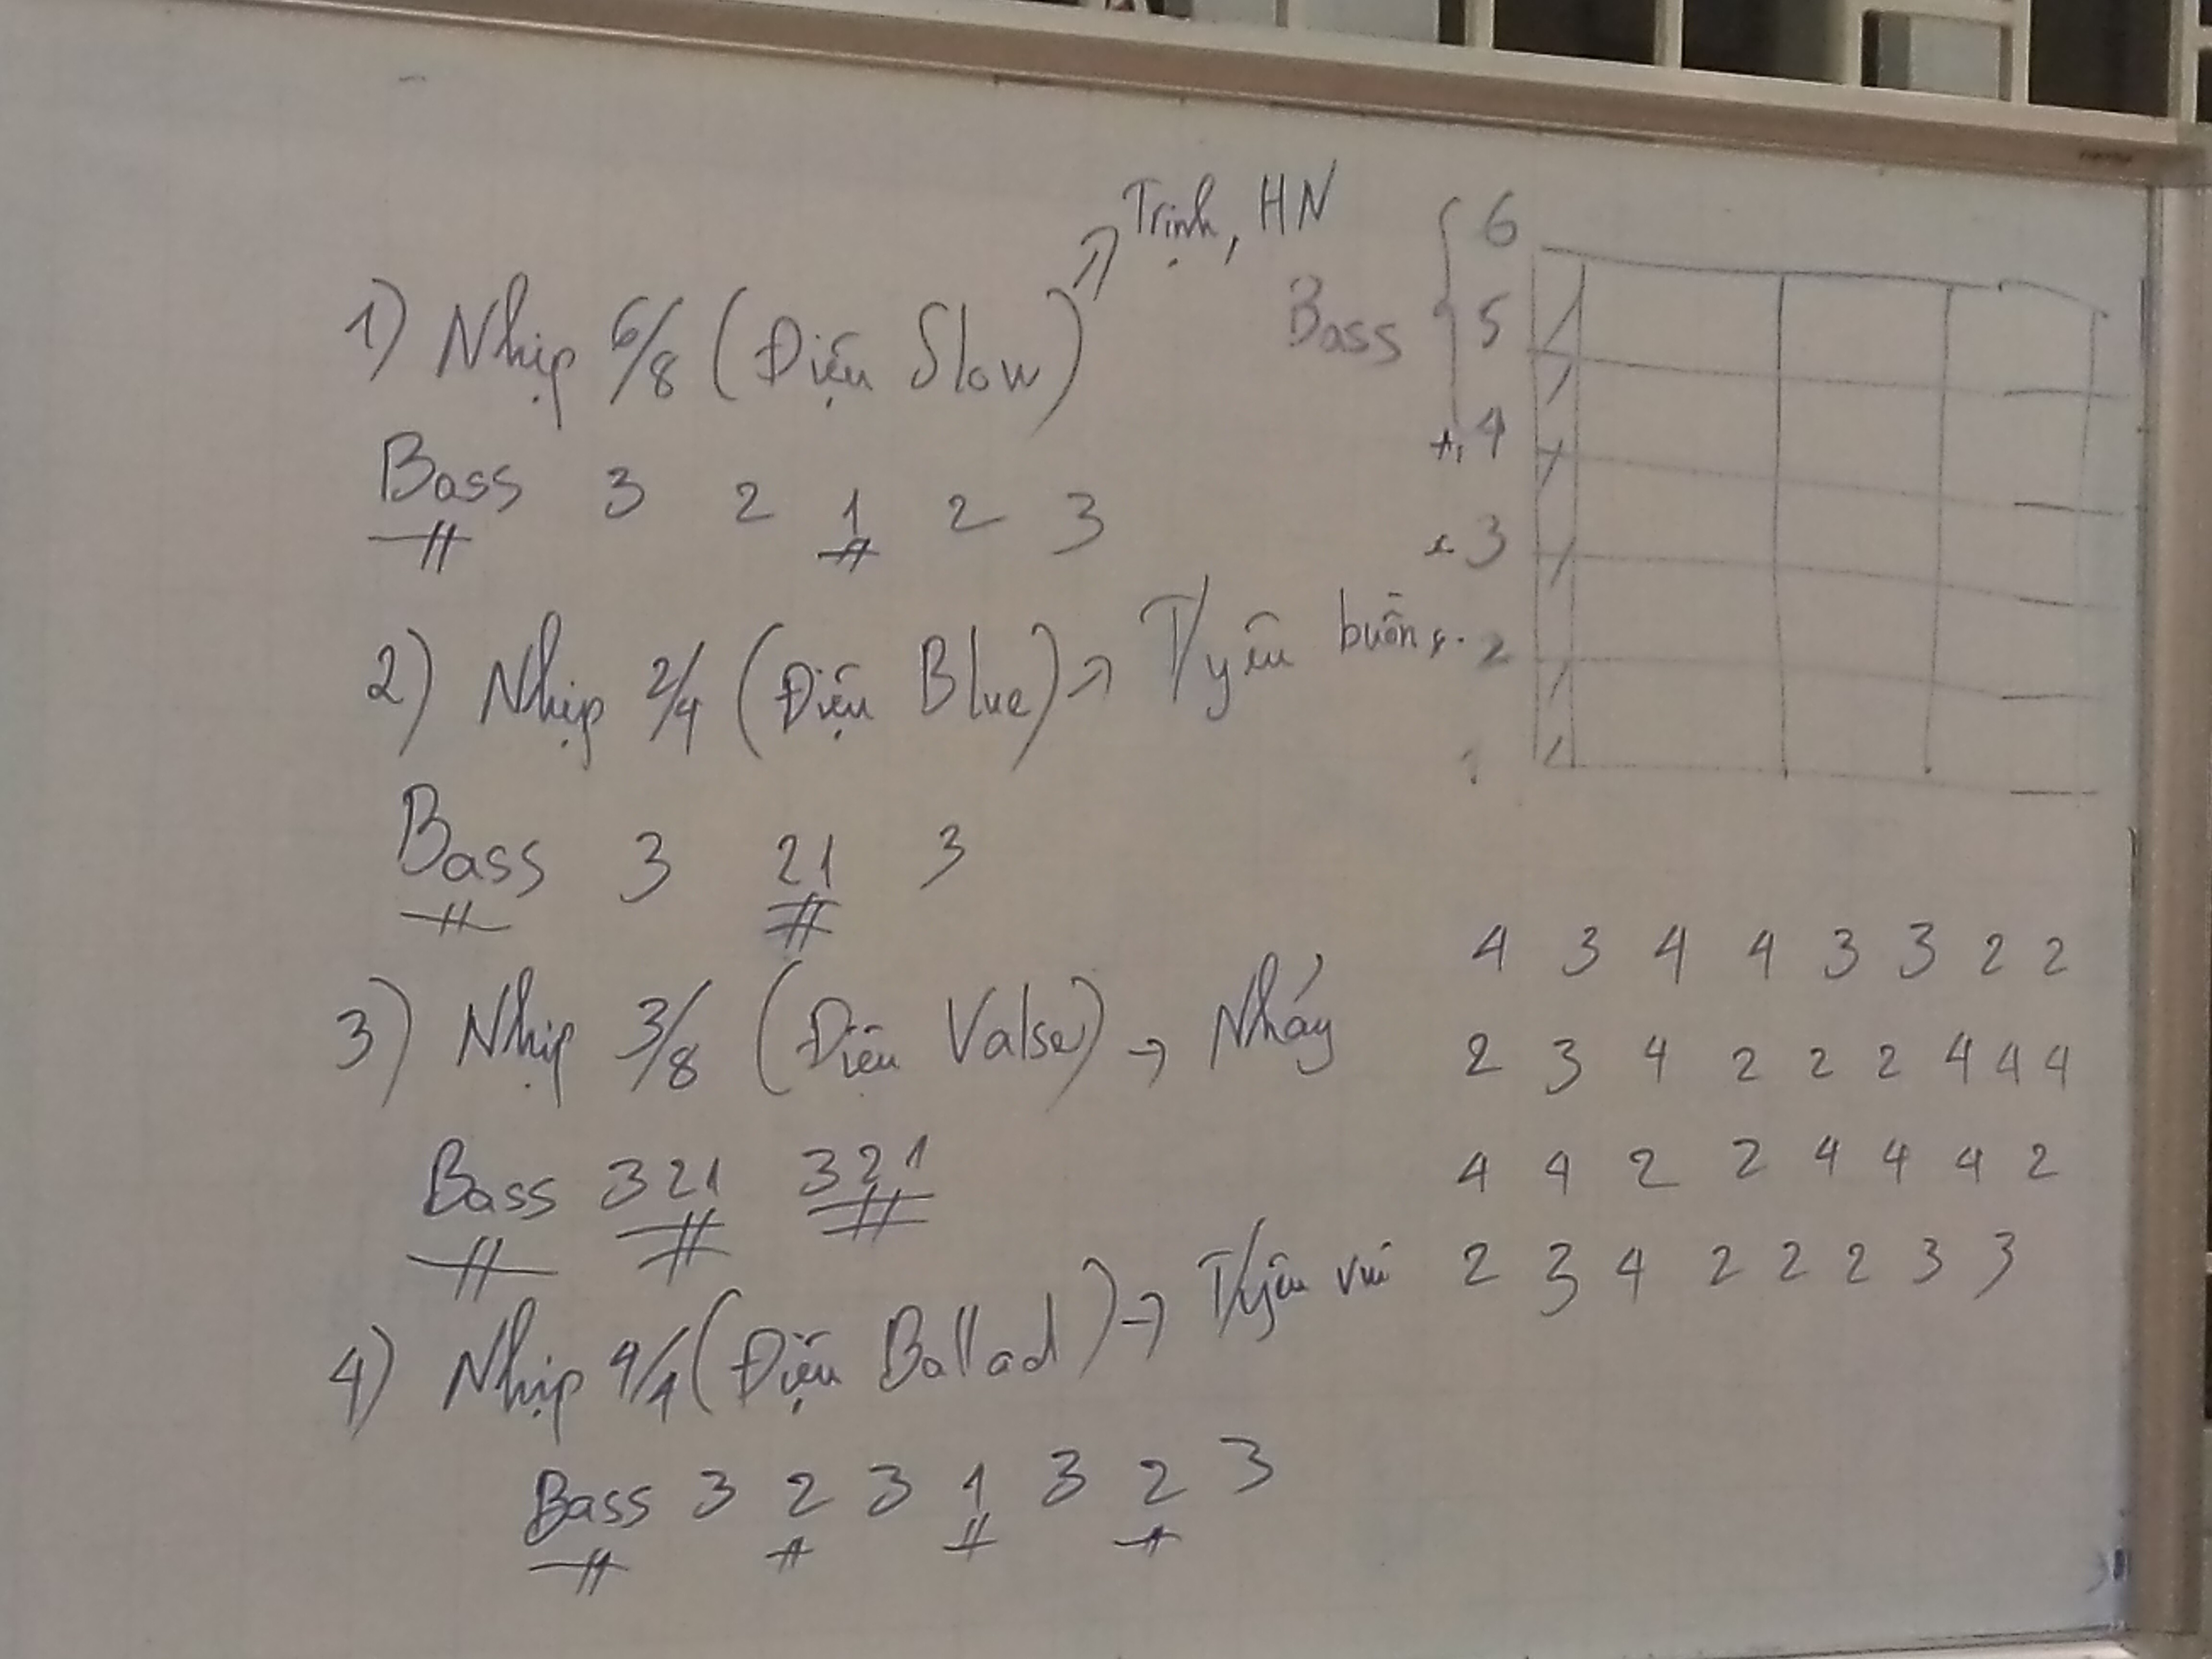 Trịnh, HN
1) Nhịp 6/8 (Điệu Slow) →
Bass 3 2 1 2 3
2) Nhịp 2/4 (Điệu Blue) → T/yêu buồn
Bass 3 21 3
3) Nhịp 3/8 (Điệu Valse) → Nhảy
Bass 321 321
4) Nhịp 4/4 (Điệu Ballad) → T/yêu vui
Bass 3 2 3 1 3 2 3
6
Bass 5
4
3
2
1
4 3 4 4 3 3 2 2
2 3 4 2 2 2 4 4 4
4 4 2 2 4 4 4 2
2 3 4 2 2 2 3 3